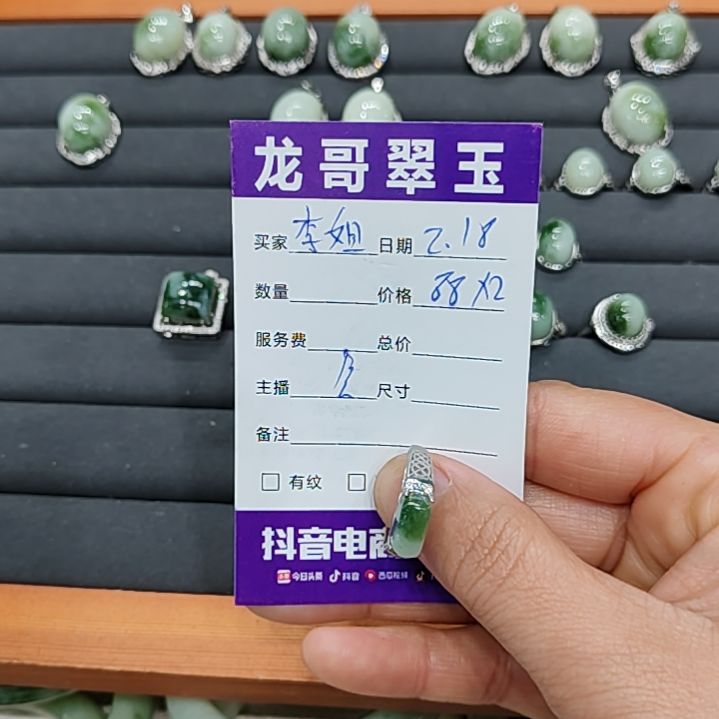 龙哥翠玉
买家 李姐 日期 2.18
数量 价格 88X2
服务费 总价
主播 尺寸
备注
有纹
抖音电商
今日头条 抖音 西瓜视频